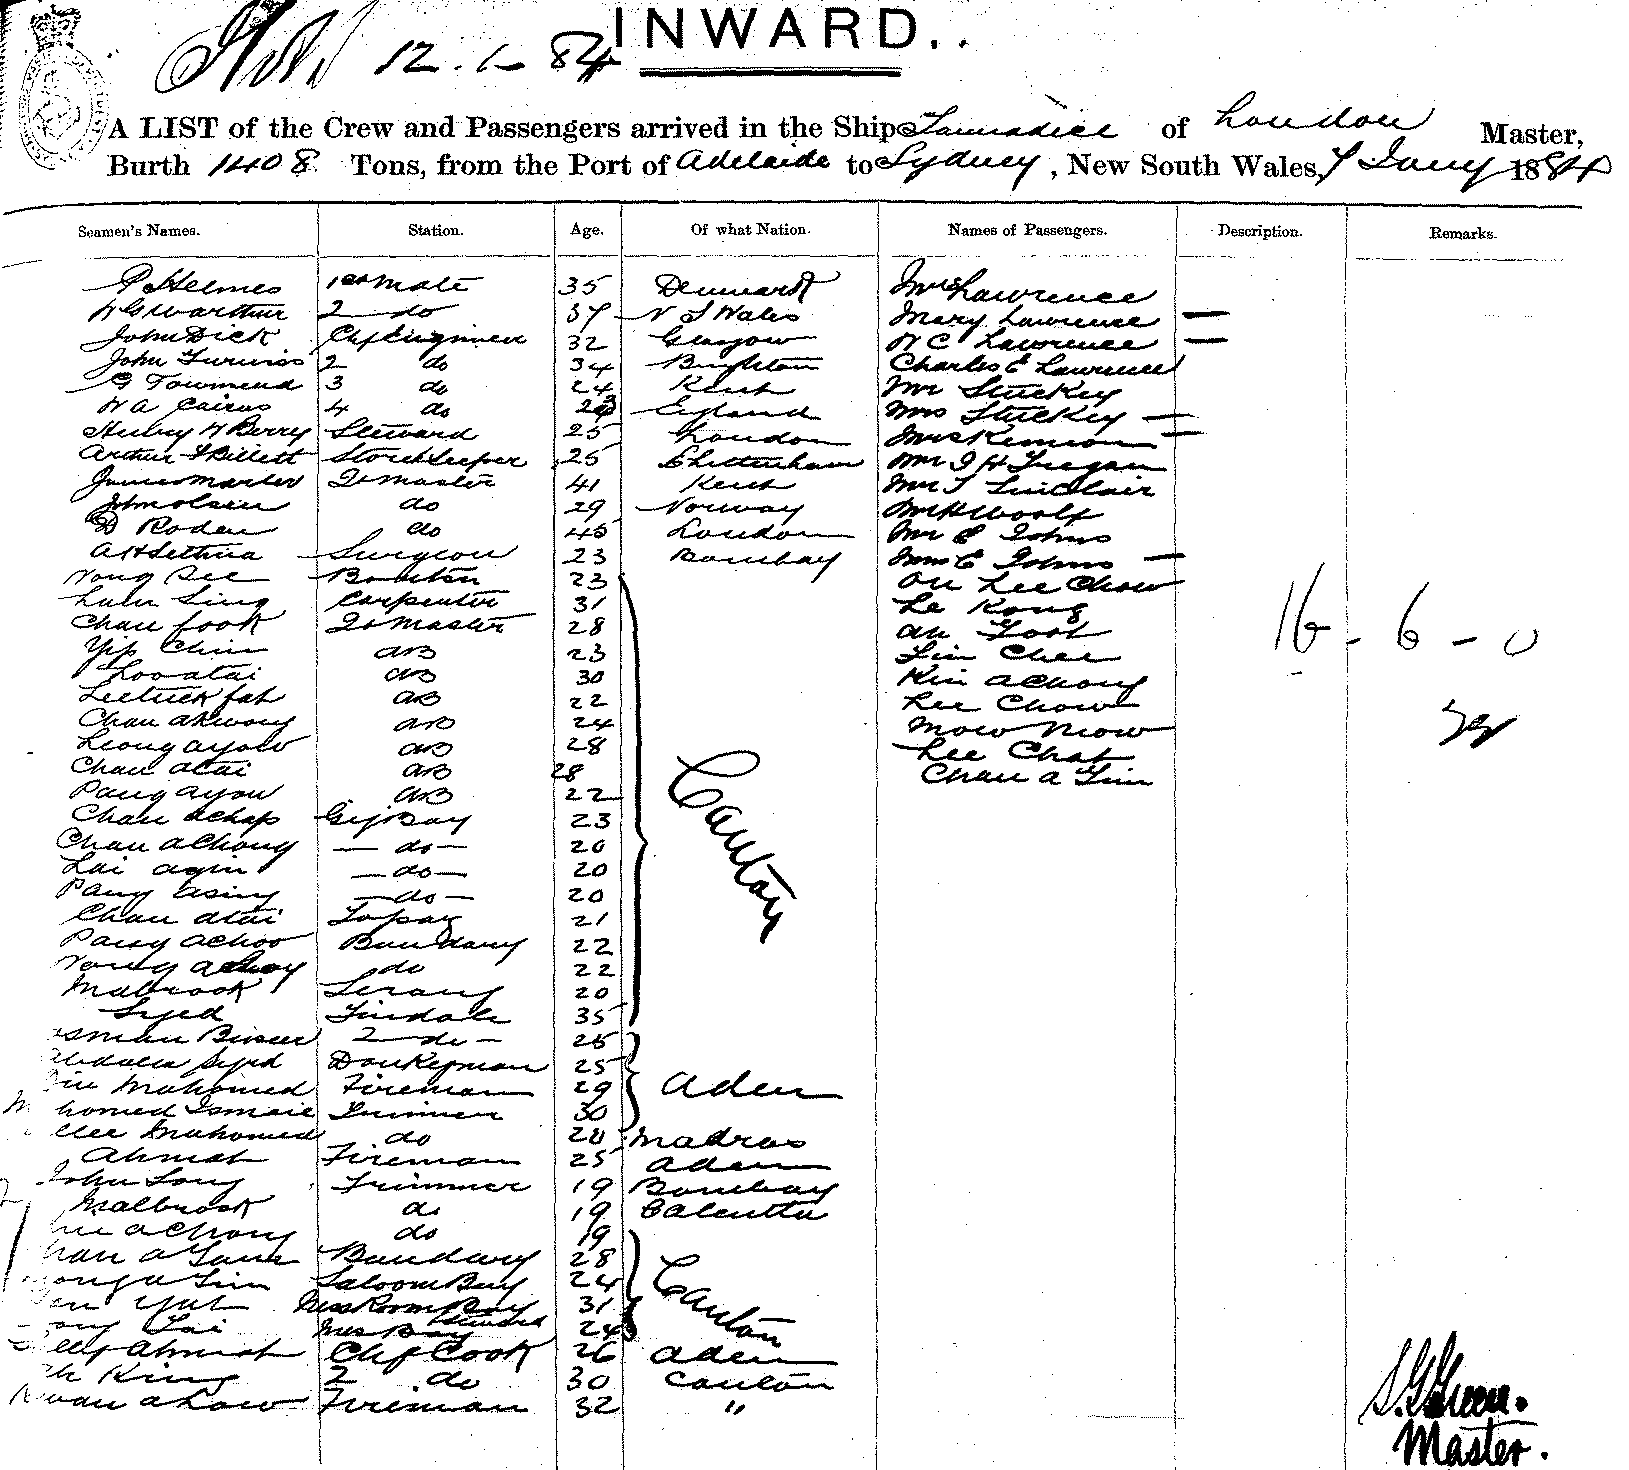 INWARD..
12.1.84
A LIST of the Crew and Passengers arrived in the Ship Tannadice of London Master,
Burth 1408 Tons, from the Port of Adelaide to Sydney, New South Wales, 7 Jany 1884
Seamen's Names. Station. Age. Of what Nation. Names of Passengers. Description. Remarks.
P Helmes 1st Mate 35 Denmark Mrs Lawrence
2 do 37 N S Wales Mary Lawrence —
John Dick Chf Engineer 32 Glasgow W C Lawrence —
John 2 do 34 Brighton Charles E Lawrence
G Townsend 3 do 24 Kent Mr Stuckey
W A Cairns 4 do England Mrs Stuckey —
Henry W Berry Steward 25 London Mrs Kemion —
Arthur Billett Storekeeper 25 Cheltenham Mr J H Tregan
James Master Qr Master 41 Kent Mr T Sinclair
John Olsen do 29 Norway Mr H Woolf
D Roden do 45 London Mr C Johns
A H Sethna Surgeon 23 Bombay Mrs C Johns —
Vong See 23 On Lee Chow
Lum Sing Carpenter 31 Le Kong
Chau Fook Qr Master 28 Ah Foot
Yip Chim AB 23 Lin Chee
Loo atai AB 30 Kin achong
Leetuck fat AB 22 Lee Chow
Chau akwong AB 24 Mow Mow
Leong ayow AB 28 Lee Chat
Chau atai AB 28 Chau a Tim
Pang ayou AB 22
Chau achap Gig Boy 23
Chau achong — do — 20
Lai agin — do — 20
Pang asing — do — 20
Chau atai Topaz 21
Pang achoo Bundary 22
Vong do 22
Mabrook Serang 20
Syed Tindale 35
Canton
2 do - 25
Syed Donkeyman 25
Mahomed Fireman 29 Aden
homed Ismail Trimmer 30
Mahomed do 20 Madras
Ahmat Fireman 25 Aden
John Song Trimmer 19 Bombay
Malbrook do 19 Calcutta
achong do 19
Bundary 28
Saloon Boy 24
Yut Messroom Boy 31
Lai Mess Boy 24
Canton
Ahmat Chf Cook 26 Aden
King 2 do 30 Canton
a Low Fireman 32 "
16 - 6 - 0
S. G. Green.
Master.